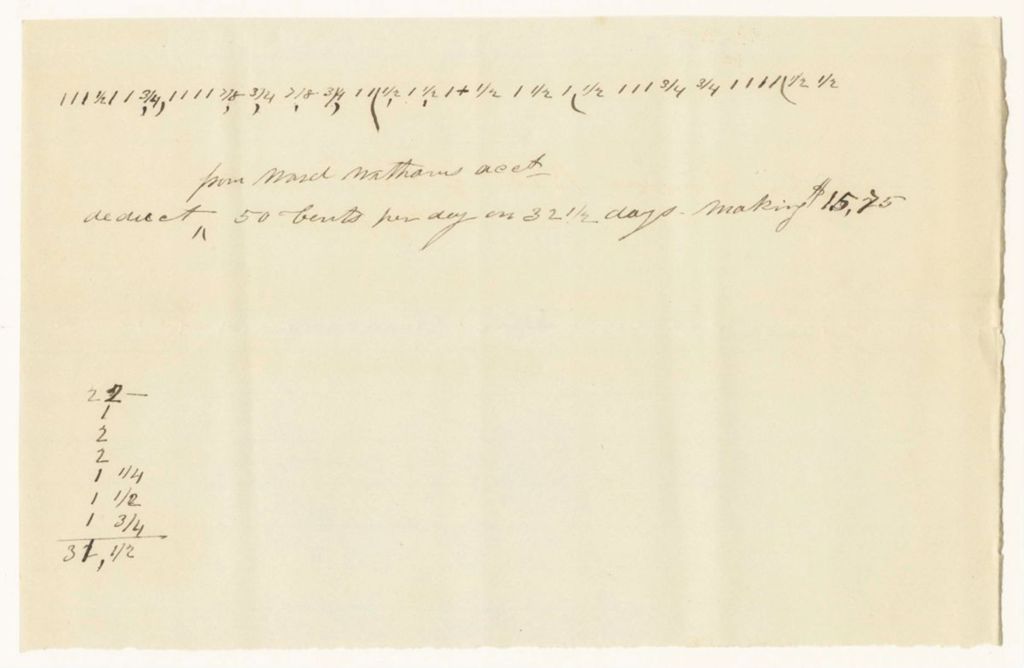 1 1 1 1/2 1 1 3/4, 1 1 1 1 7/8 3/4 7/8 3/4 1 1 1/2 1 1/2 1 + 1/2 1 1/2 1 1/2 1 1 1 3/4 3/4 1 1 1 1 1/2 1/2
from Ward Nathans acct
deduct ^ 50 Cents per day on 32 1/2 days - making $15,75
22 —
1
2
2
1 1/4
1 1/2
1 3/4
31, 1/2